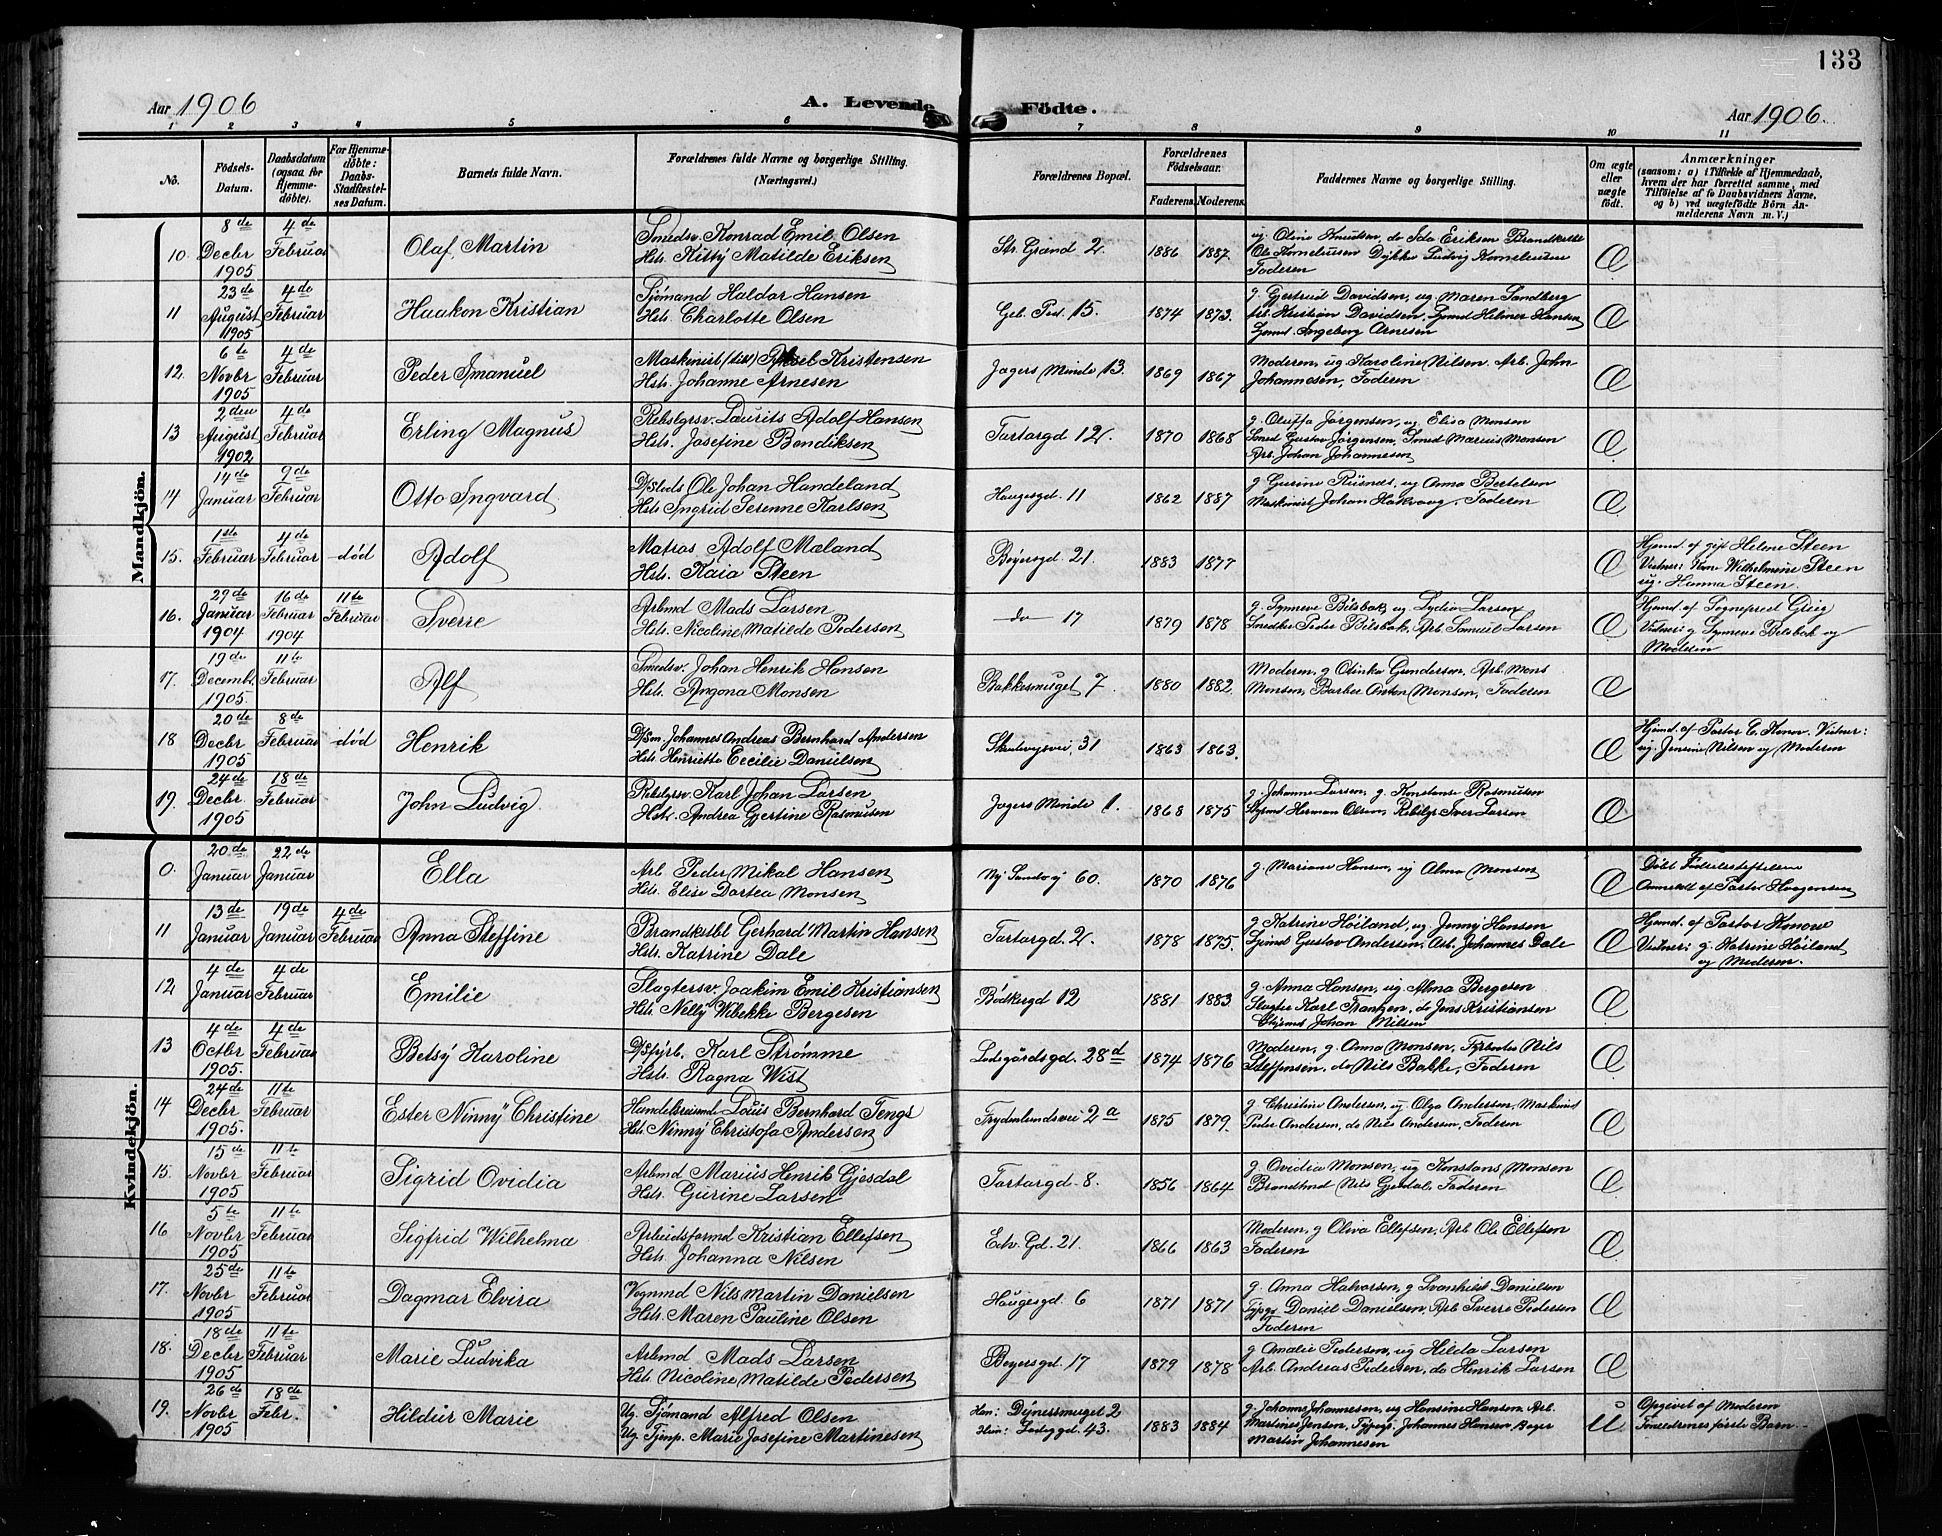 133
Aar 1906
A. Levende Födte.
Aar 1906.
1 2 3 4 5 6 7 8 9 10 11
No.
Födsels-
Datum.
Daabsdatum
(ogsaa for
Hjemme-
döbte).
For Hjemme-
döbte:
Daabs-
Stadfæstel-
ses Datum.
Barnets fulde Navn.
Forældrenes fulde Navne og borgerlige Stilling.
(Næringsvei.)
Forældrenes Bopæl.
Forældrenes
Födselsaar.
Faderens. Moderens.
Faddernes Navne og borgerlige Stilling.
Om ægte
eller
uægte
födt.
Anmærkninger
(saasom: a) i Tilfælde af Hjemmedaab,
hvem der har forrettet samme, med
Tilföielse af to Daabsvidners Navne,
og b) ved uægtefödte Börn An-
melderens Navn m. V.)
Mandkjön.
10 8de Decbr 1905 4de Februar Olaf Martin
Smedsv. Konrad Emil Olsen
Hst. Kitty Matilde Eriksen
Str. Grånd 2. 1886 1887.
ug. Oline Knudsen, do Ida Eriksen
Ole Korneliussen Dykker Ludvig Korneliussen
Faderen
Æ
11 23de August 1905 4de Februar Haakon Kristian
Sjømand Haldor Hansen
Hst. Charlotte Olsen
15. 1874 1873.
g. Gjertrud Davidsen, ug Maren Sandberg
Arb. Kristian Davidsen, Sjømd Helmer Hansen
Sjømd. Arnesen
Æ
12. 6te Novbr 1905 4de Februar Peder Imanuel
Maskinist Kristensen
Hst. Johanne Arnesen
Jægers Minde 13. 1869 1867
Moderen, ug Karoline Nilsen. Arb. John
Johannesen, Faderen
Æ
13 2den August 1902 4de Februar Erling Magnus
Rebslgrsv. Laurits Adolf Hansen
Hst. Josefine Bendiksen
Tartargd 12. 1870 1868
g. Oluffa Jørgensen, ug Elisa Monsen
Smed Gustav Jørgensen, Smed Marius Monsen
Arb. Johan Johannesen
Æ
14 14de Januar 9de Februar Otto Ingvard
Ole Johan Handeland
Hst. Ingrid Serenne Karlsen
Haugesgd. 11 1862 1887
g Gurine ug Anna Bertelsen
Maskinist Johan Faderen
Æ
15. 1ste Februar 4de Februar død Adolf
Matros Adolf Mæland
Hst. Kaia Steen
Beyersgd. 21. 1883 1877
Æ
Hjemd. af gift Helene Steen
Vidner: Wilhelmine Steen
ug. Hanna Steen
16. 29de Januar 1904 16de Februar 1904 11te Februar Sverre
Arbmd Mads Larsen
Hst. Nicoline Matilde Pedersen
do 17 1879 1878
g. Synneve Bilsbak, ug Lydia Larsen
Peder Bilsbak, Arb. Samuel Larsen
Æ
Hjemd. af Sognepræst Grieg
Vidner: g Synneve Bilsbak og
Moderen
17. 19de Decemb. 1905. 11te Februar Alf
Smedsv. Johan Henrik Hansen
Hst. Angona Monsen
Bakkesmuget 7. 1880 1882.
Moderen, g Otinka Gundersen, Arb. Mons
Monsen, Barber Anton Monsen, Faderen
Æ
18 20de Decbr 1905 8de Februar død Henrik
Johannes Andreas Bernhard Andersen
Hst. Henriette Cecilie Danielsen
Skuteviksvei 31 1863 1863.
Æ
Hjemd. af Pastor Konow. Vidner:
ug. Jensine Nilsen og Moderen
19. 24de Decbr 1905 18de Februar John Ludvig
Rebslgrsv. Karl Johan Larsen
Hst. Andrea Gjertine Rasmussen
Jægers Minde 1. 1868 1875
g. Johanne Larsen, g. Konstanse Rasmussen
Styrmd Herman Olsen, Rebslgr Iver Larsen
Æ
Kvindekjön.
0. 20de Januar 22de Januar Ella
Arb Peder Mikal Hansen
Hst. Elise Dortea Monsen
Ny Sandvig 60. 1870 1876
g. Mariane Hansen, ug Alma Monsen
Æ
Døbt Fødselsstiftelsen
Anmeldt af Pastor Haagensen
11 13de Januar 19de Januar 4de Februar Anna Steffine
Brandkstbl Gerhard Martin Hansen
Hst. Katrine Dale
Tartargd. 2. 1878 1875.
g Katrine Høiland, ug Jenny Hansen
Sjømd Gustav Andersen, Arb. Johannes Dale
Æ
Hjemd. af Pastor Konow
Vidner: g. Katrine Høiland
og Moderen.
12 4de Januar 4de Februar Emilie
Slagtersv. Joakim Emil Kristiansen
Hst. Nelly Wibekke Bergesen
Bødkergd 12 1881 1883
g. Anna Hansen, ug Alma Bergesen
Slagter Karl Frangen, do Jens Kristiansen
Styrmd Johan Nilsen
Æ
13 4de Octbr 1905. 4de Februar Betsy Karoline
D/Sfyrb. Karl Strømme
Hst. Ragna Wist
Ladegårdsgd. 28d 1874 1876
Moderen, g. Anna Monsen, Fyrbøder Nils
Steffensen, do Nils Bakke, Faderen
Æ
14 24de Decbr 1905. 11te Februar Ester Ninny Christine
Handelsreisende Louis Bernhard Tengs
Hst. Ninny Christofa Andersen
Frydenlundsvei 2a 1875 1879.
g. Christine Andersen, ug Olga Andersen, Maskinist
Peder Andersen, do Nils Andersen, Faderen
Æ
15. 15de Novbr 1905 11te Februar Sigrid Ovidia
Arbmd Marius Henrik Gjesdal
Hst. Gurine Larsen
Tartargd. 8. 1856 1864
g. Ovidia Monsen, ug Konstans Monsen
Brandkmd Nils Gjesdal, Faderen
Æ
16 5te Novbr 1905 11te Februar Sigfrid Wilhelma
Arbeidsformd Kristian Ellefsen
Hst. Johanna Nilsen
Edv. Gd. 21. 1866 1863
Moderen, g Oliva Ellefsen, Arb Ole Ellefsen
Faderen
Æ
17. 25de Novbr 1905 11te Februar Dagmar Elvira
Vognmd Nils Martin Danielsen
Hst. Maren Pauline Olsen
Haugesgd. 6 1871 1871
g. Anna Halvorsen, g Svanhild Danielsen
Typgr. Daniel Danielsen, Arb Sverre Pedersen
Faderen
Æ
18. 18de Decbr 1905 11te Februar Marie Ludvika
Arbmd Mads Larsen
Hst. Nicoline Matilde Pedersen
Beyersgd. 17 1879 1878
g Amalie Pedersen, ug Hilda Larsen
Arb. Andreas Pedersen, do Henrik Larsen
Æ
19. 26de Novbr 1905 18de Febr. Hildur Marie
Ug. Sjømand Alfred Olsen
Ug Marie Josefine Martinesen
Han: Dynesmuget 2
Hun: Ladeggd. 43. 1883 1884
g. Johanne Johannesen, ug Hansine Hansen, Arb.
Martines Jensen, Typogr. Johannes Hansen,
Martin Johannesen
U
Opgivet af Moderen
Forældrenes første Barn